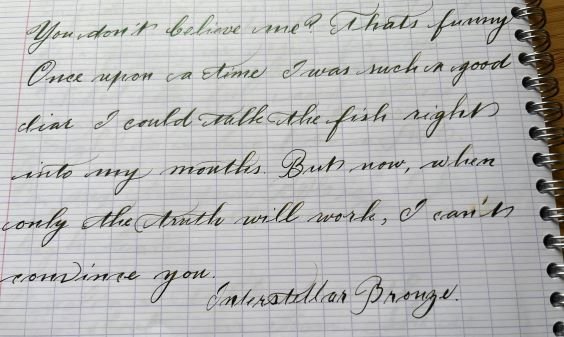 You don't believe me? Thats funny
Once upon a time I was such a good
liar I could talk the fish right
into my mouth. But now, when
only the truth will work, I can't
convince you.
Interstellar Bronze.